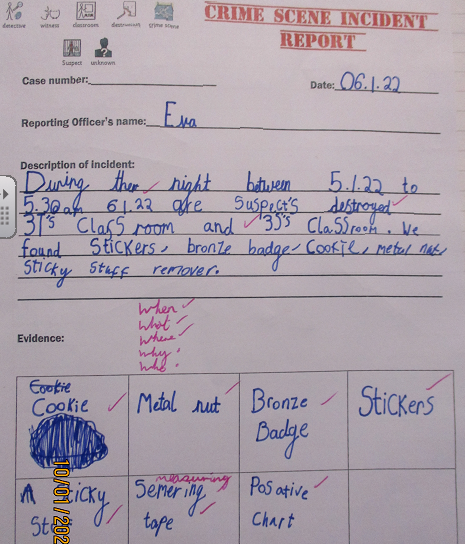 detective witness classroom destruction crime scene
CRIME SCENE INCIDENT
REPORT
Suspect unknown
Case number:
Date: 06.1.22
Reporting Officer's name: Eva
Description of incident:
During ther night between 5.1.22 to
5.30am 61.22 are suspect's destroyed
3T's Class room and 3S's Classroom. We
found Stickers, bronze badge, Cookie, metal nut,
Sticky Stuff remover.
when
what
where
why
who
Evidence:
Cookie
Cookie
Metal nut
Bronze
Badge
Stickers
measuring
Semering
tape
Posative
Chart
10/01/202